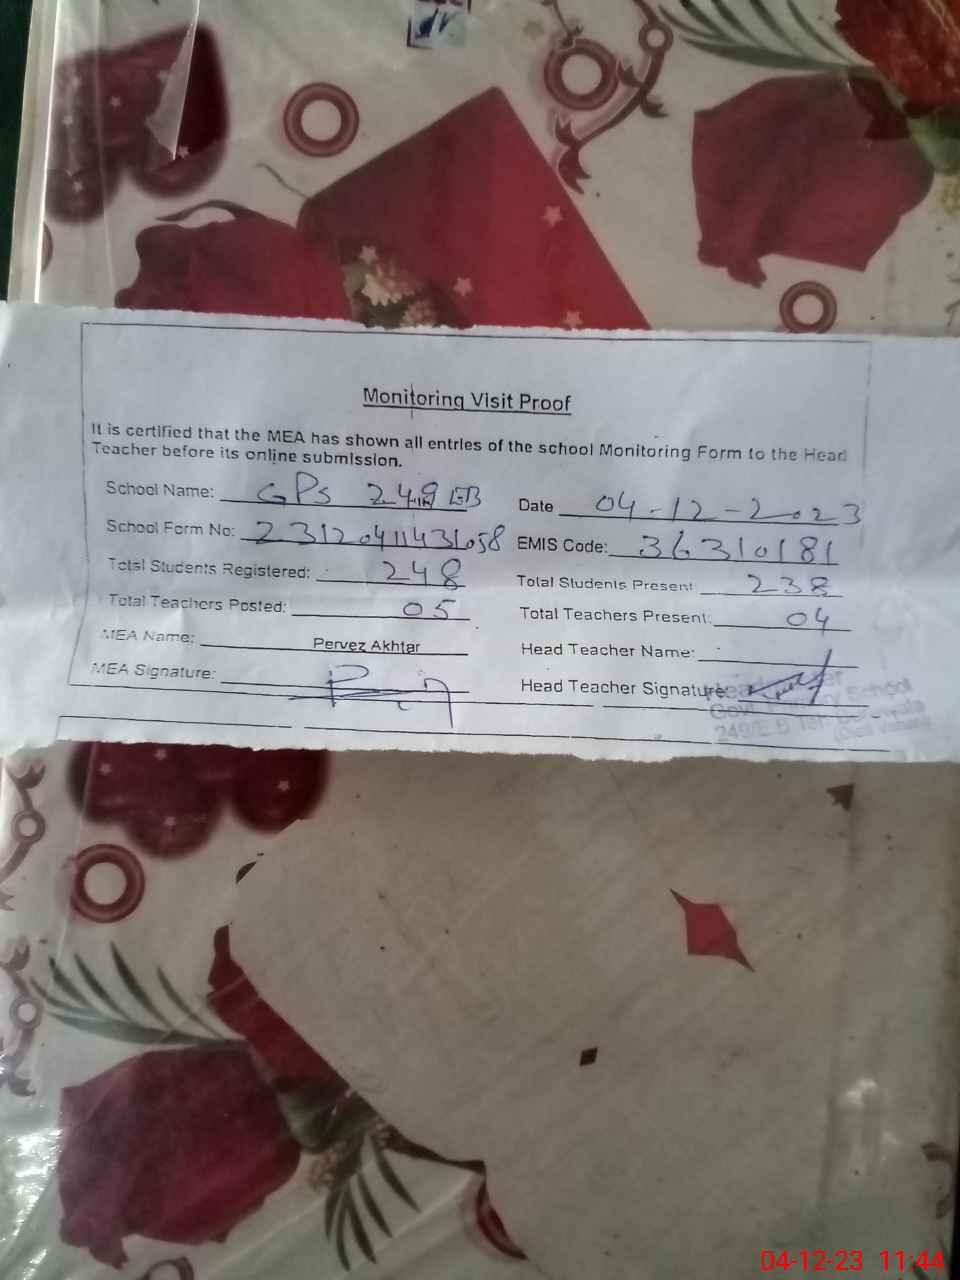 Monitoring Visit Proof
It is certified that the MEA has shown all entries of the school Monitoring Form to the Head
Teacher before its online submission.
School Name: GPS 249 EB
Date 04-12-2023
School Form No: 23120411431058
EMIS Code: 36310181
Total Students Registered: 248
Total Students Present: 238
Total Teachers Posted: 05
Total Teachers Present: 04
MEA Name: Pervez Akhtar
Head Teacher Name:
MEA Signature:
Head Teacher Signature:
Govt. School
249/E.B
04-12-23 11:44